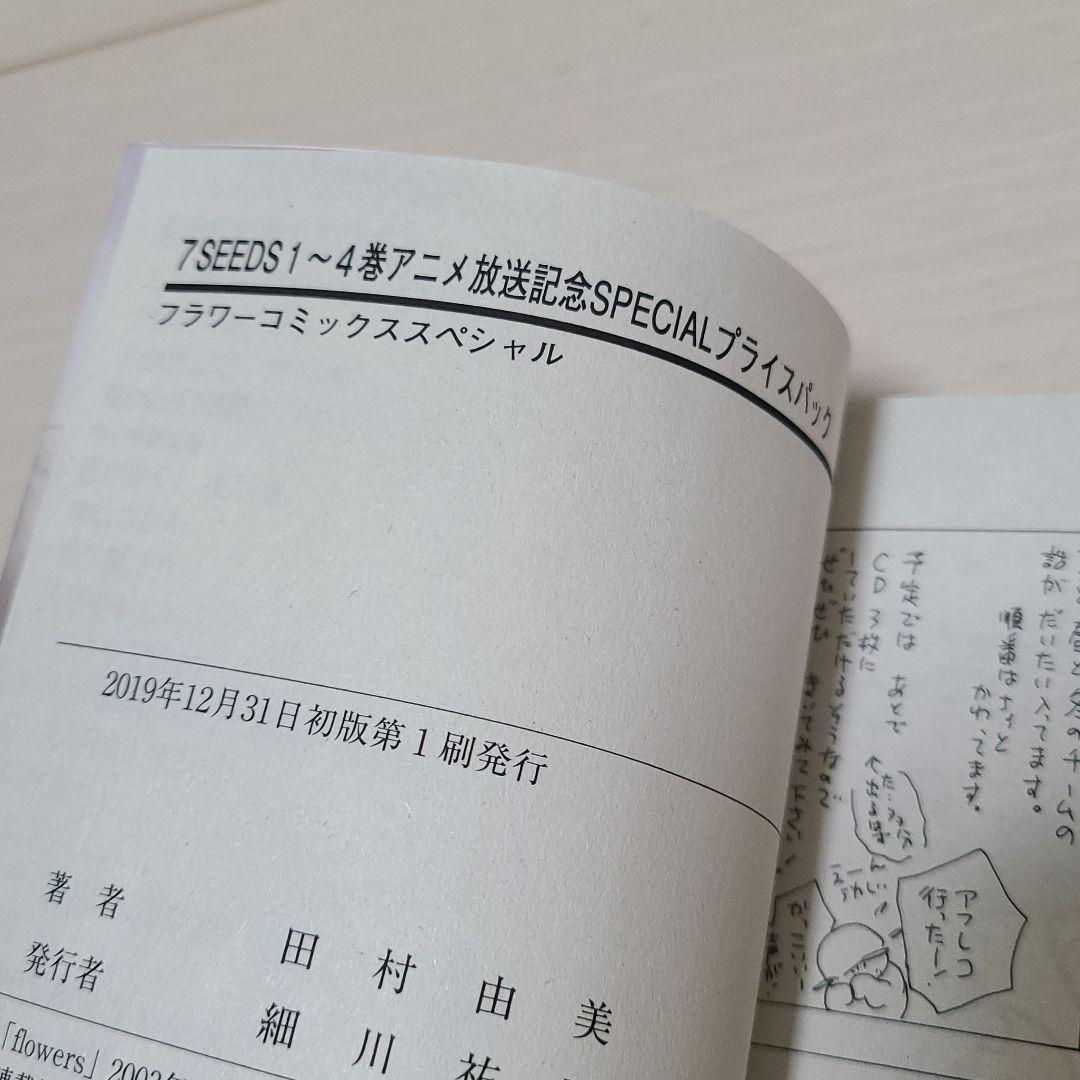 7SEEDS1～4巻アニメ放送記念SPECIALプライスパック
フラワーコミックススペシャル
2019年12月31日初版第1刷発行
著者 田村由美
発行者 細川祐
「flowers」2002年
話が だいたい入ってます。
順番はちょっと
かわってます。
予定では あとで
CD3枚に
していただけるそうなので
ぜひぜひ きいてみて下さい!
アフレコ
行ったー!